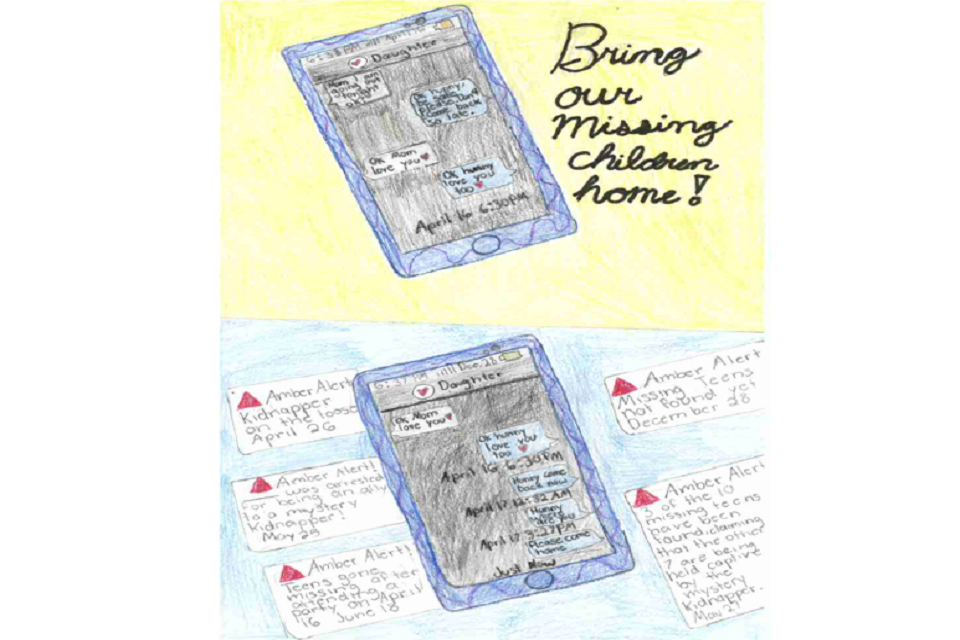 6:38 PM April 16
Daughter
Mom I am
going out
tonight
ok?
Ok hunny,
be safe,
please don't
come back
so late.
Ok Mom
love you
Ok hunny
love you
too
April 16 6:30PM
Bring
our
Missing
children
home!
6:37 Dec. 28
Daughter
Ok Mom
love you
Ok hunny
love you
too
April 16 6:30PM
Hunny come
back now
April 17 12:32 AM
Hunny
are you
April 17 3:27PM
Please come
home
Just Now
Amber Alert
Kidnapper
on the loose
April 26
Amber Alert!
was arrested
for being an
to a mystery
Kidnapper!
May 25
Amber Alert!
Teens gone
missing after
attending a
party on April
16 June 18
Amber Alert
Missing Teens
not found yet
December 28
Amber Alert
of the 10
missing teens
have been
found,claiming
that the other
7 are being
held captive
by the
mystery
Kidnapper.